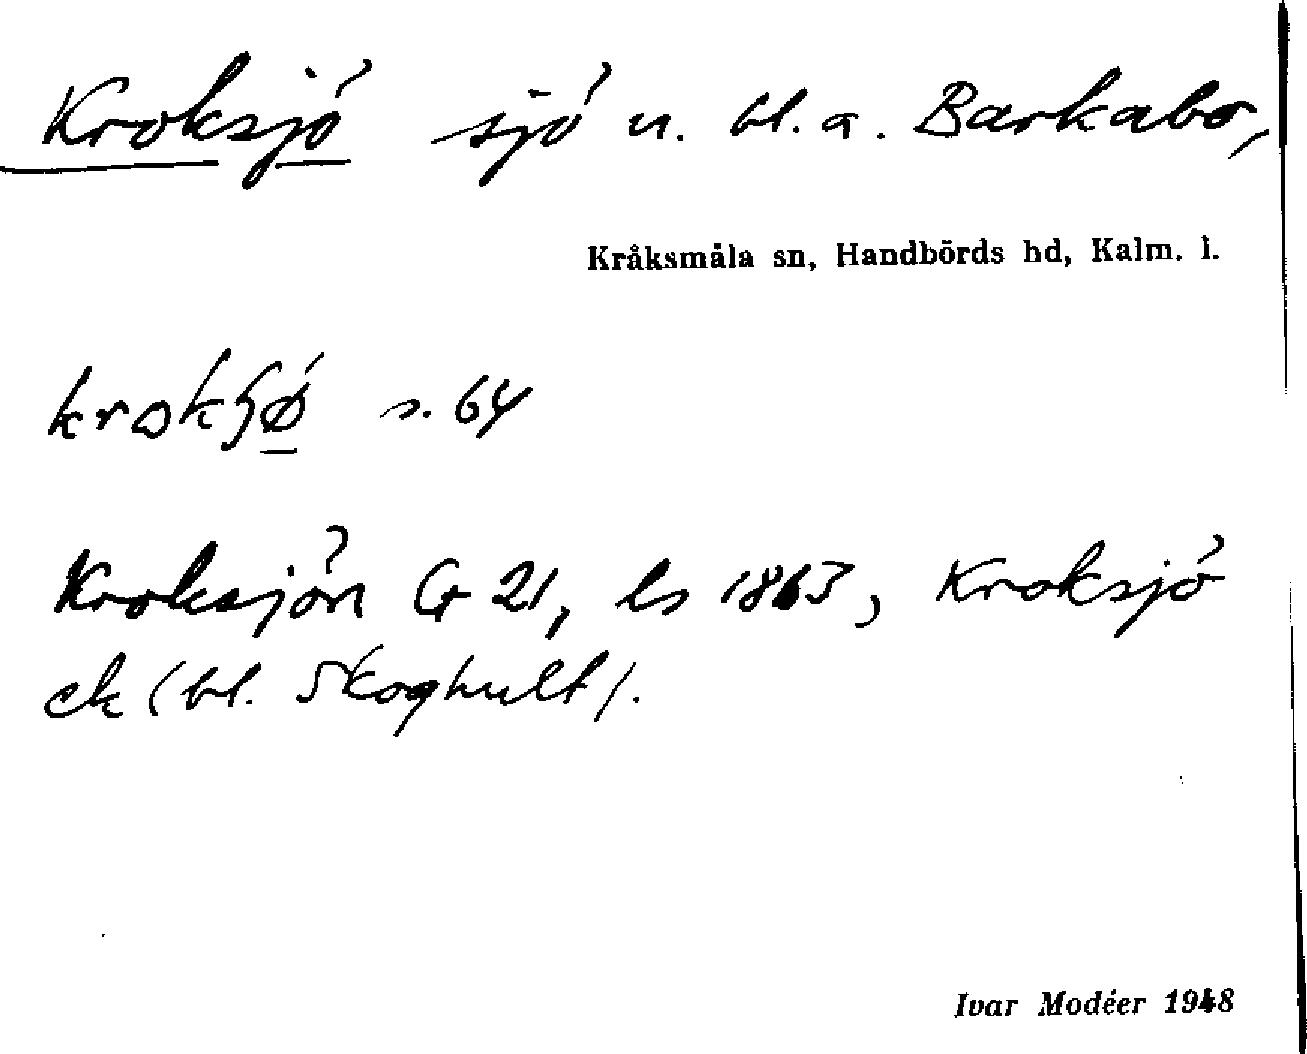 Kroksjö sjö u. bl. a. Barkabo,
Kråksmåla sn, Handbörds hd, Kalm. l.
s. 64
Kroksjön G 21, ls 1863, Kroksjö
ek (bl. Skoghult).
Ivar Modéer 1948